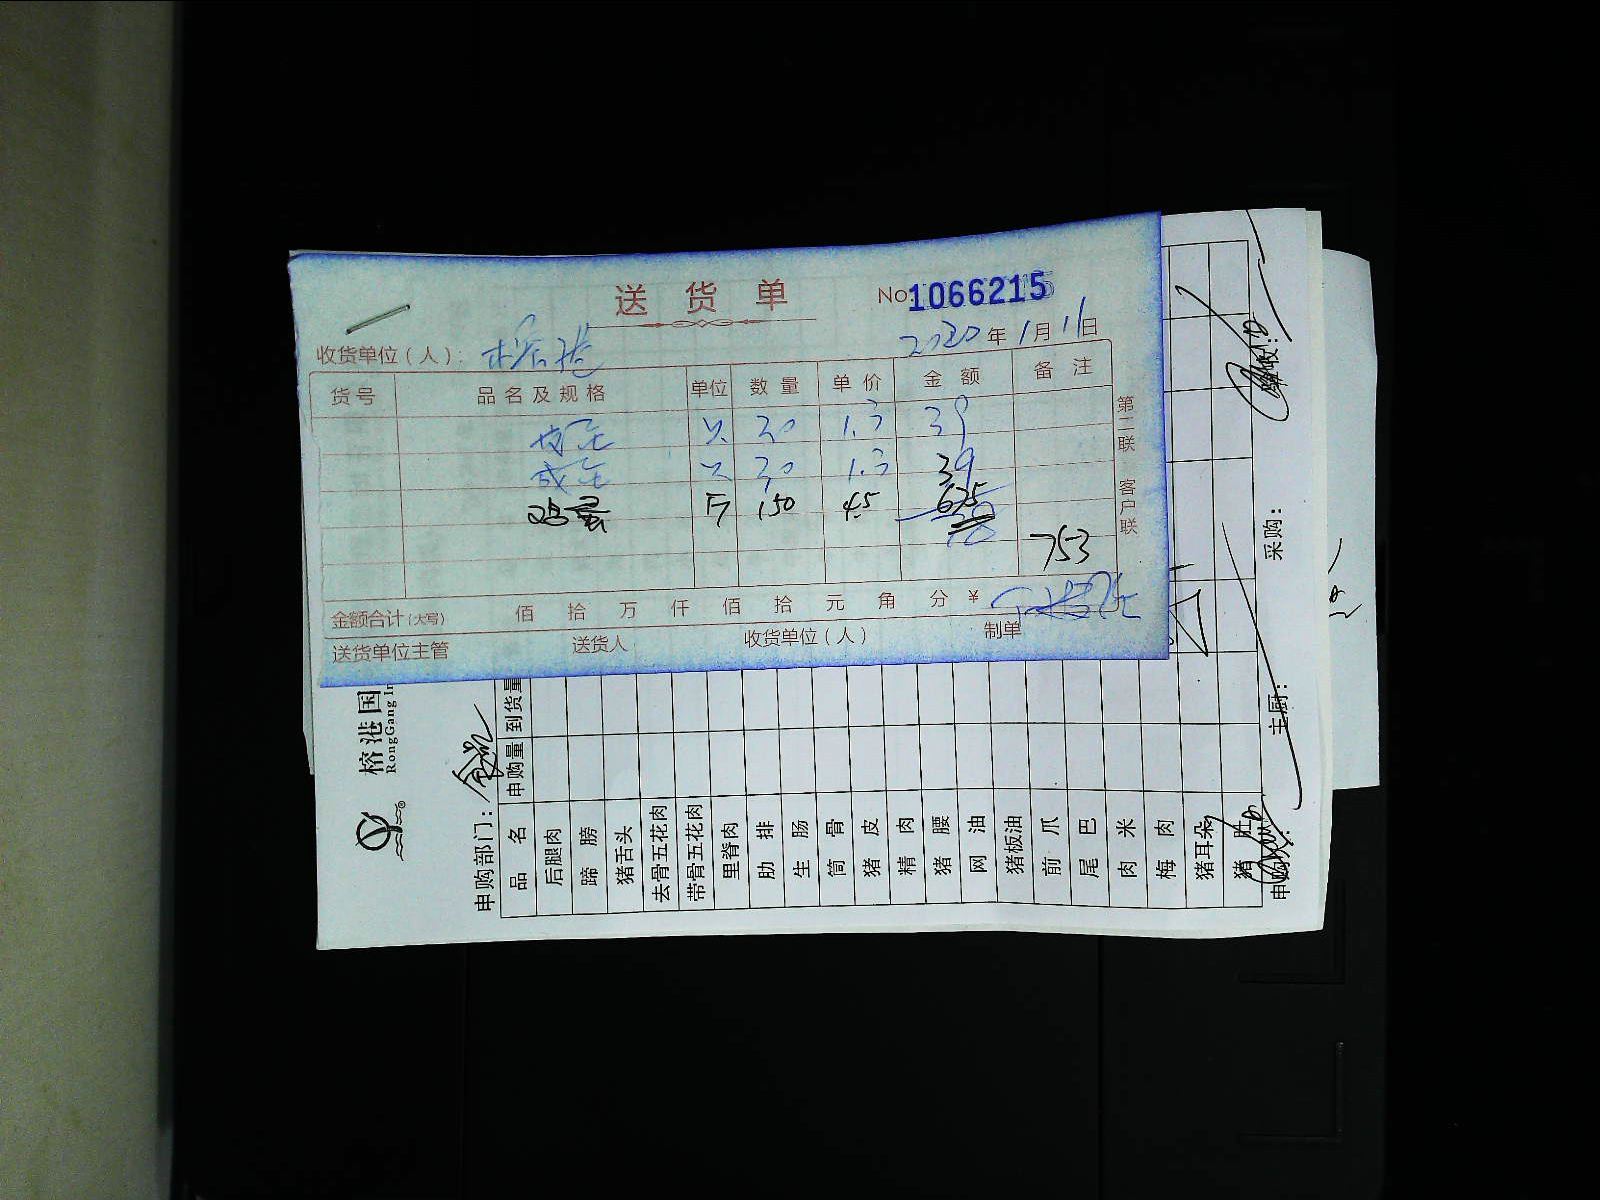 送 货 单 No 1066215
2020 年 1 月 11 日
收货单位（人）： 榕港
货号 品名及规格 单位 数量 单价 金额 备注
皮蛋 只 30 1.3 39
咸蛋 只 30 1.3 39
鸡蛋 斤 150 4.5 675
78
753
金额合计(大写) 佰 拾 万 仟 佰 拾 元 角 分 ￥
送货单位主管 送货人 收货单位（人） 制单
第二联 客户联
榕港国
RongGang In
申购部门：
品 名 申购量 到货量
后腿肉
蹄 膀
猪舌头
去骨五花肉
带骨五花肉
里脊肉
肋 排
生 肠
筒 骨
猪 皮
精 肉
猪 腰
网 油
猪板油
前 爪
尾 巴
肉 米
梅 肉
猪耳朵
猪
申购 主厨： 采购：